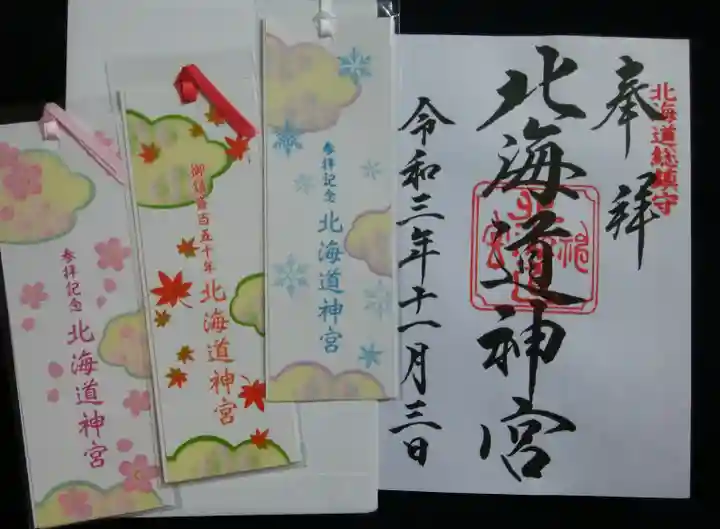 北海道総鎮守
奉拝
北海道神宮
令和三年十一月三日
参拝記念
北海道神宮
御鎮斎百五十年
北海道神宮
参拝記念
北海道神宮